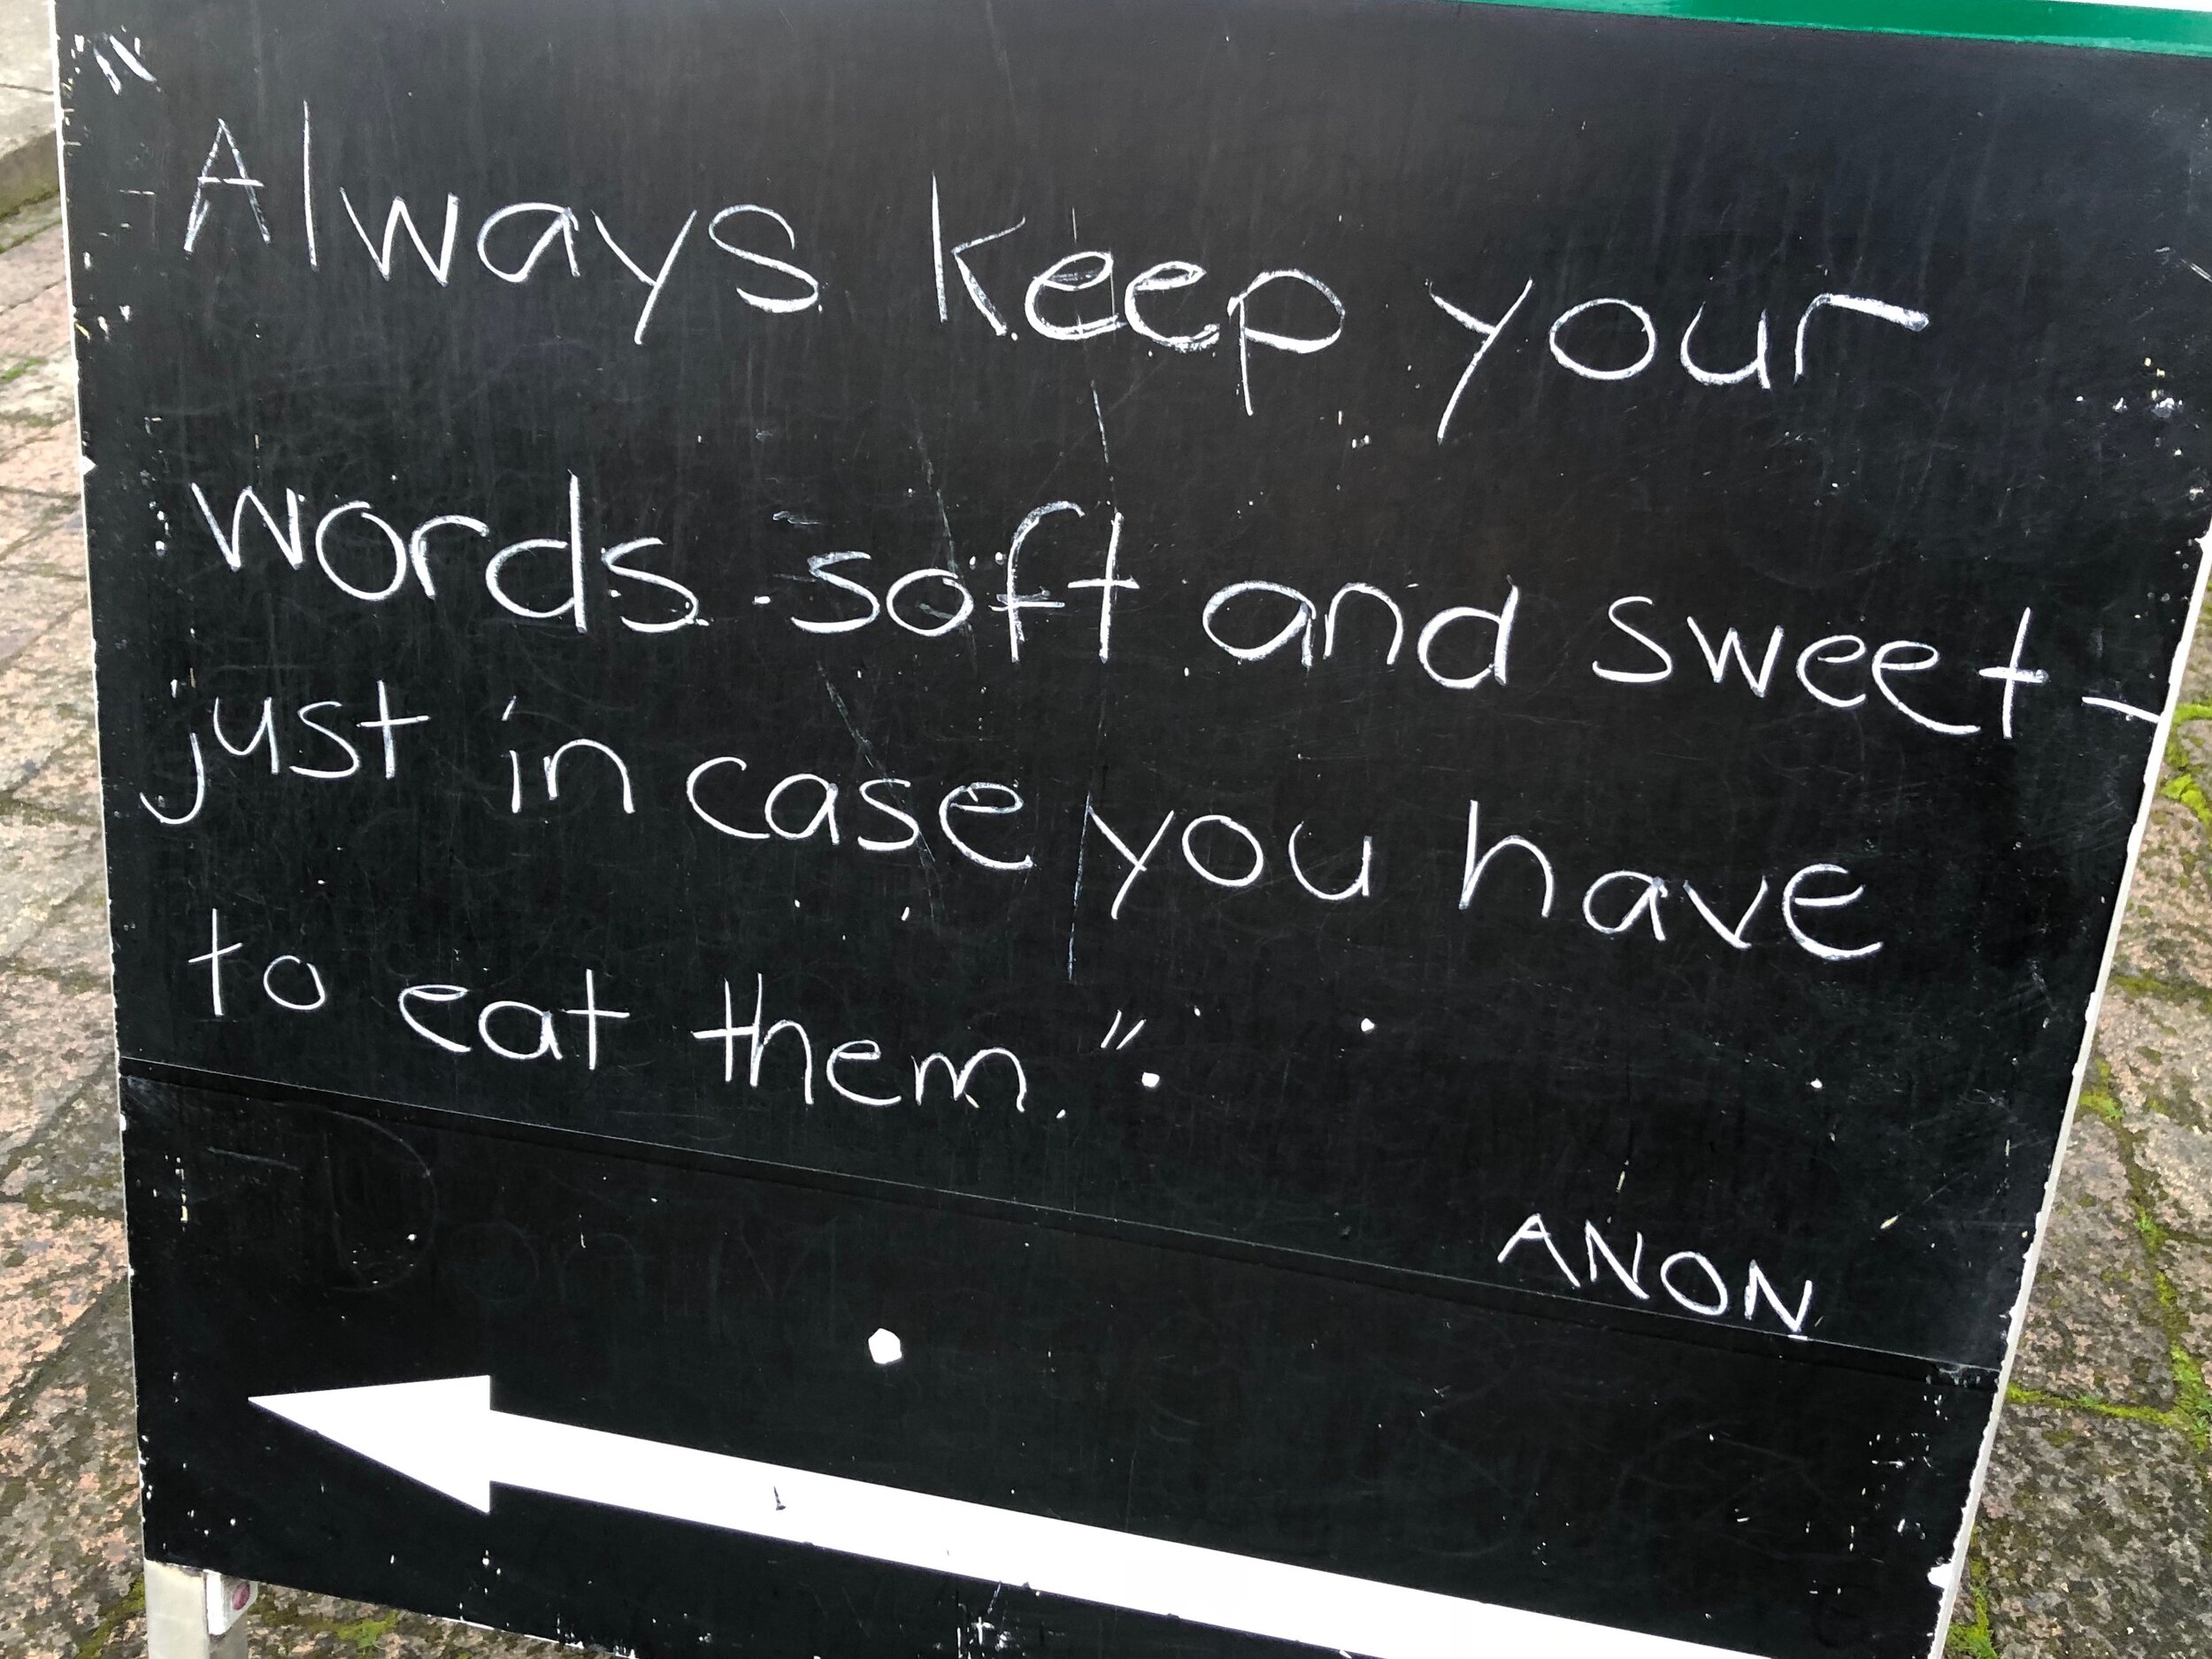 "
Always keep your
words soft and sweet-
just in case you have
to eat them."
ANON